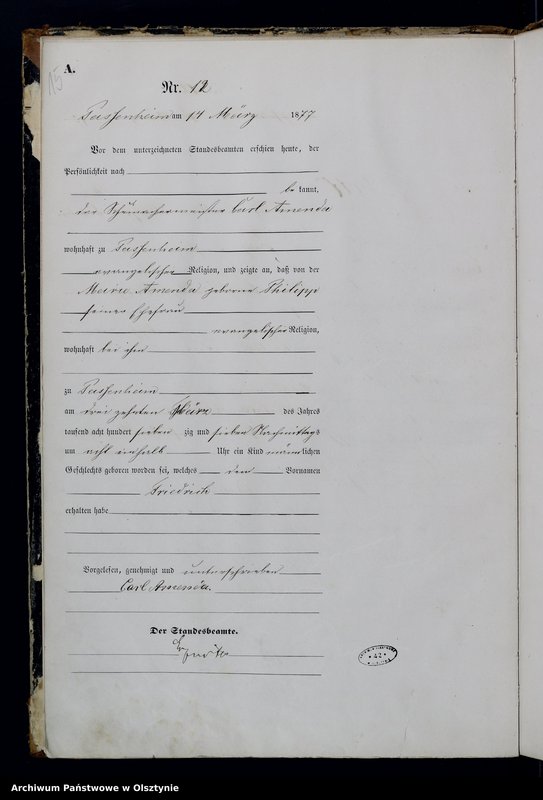 A.
15
Nr. 12
Passenheim am 14 März 1877
Vor dem unterzeichneten Standesbeamten erschien heute, der
Persönlichkeit nach
bekannt,
der Schumachermeister Carl Amenda
wohnhaft zu Passenheim
evangelischer Religion, und zeigte an, daß von der
Marie Amenda geborne Philipp
seiner Ehefrau
evangelischer Religion,
wohnhaft bei ihm
zu Passenheim
am drei zehnten März des Jahres
tausend acht hundert sieben zig und sieben Nachmittags
um acht einhalb Uhr ein Kind männlichen
Geschlechts geboren worden sei, welches den Vornamen
Friedrich
erhalten habe
Vorgelesen, genehmigt und unterschrieben
Carl Amenda.
Der Standesbeamte.
42
Archiwum Państwowe w Olsztynie